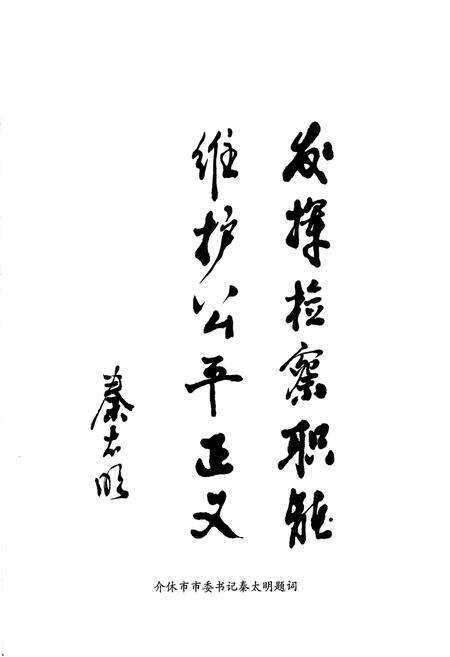 发挥检察职能
维护公平正义
秦太明
介休市市委书记秦太明题词